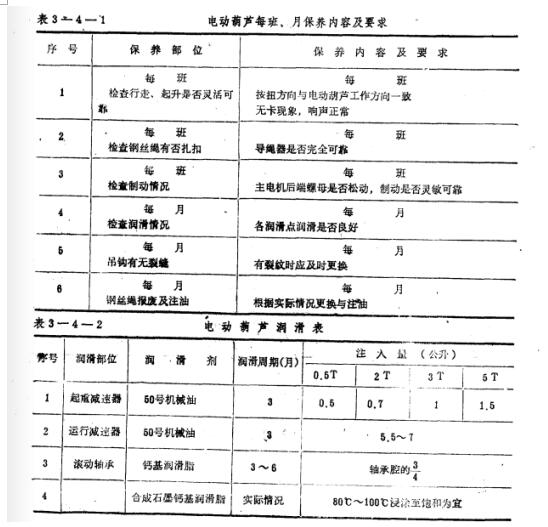 表3—4—1 电动葫芦每班、月保养内容及要求
序号 保养部位 保养内容及要求
1 每班 每班
检查行走、起升是否灵活可靠 按扭方向与电动葫芦工作方向一致
无卡现象，响声正常
2 每班 每班
检查钢丝绳有否扎扣 导绳器是否完全可靠
3 每班 每班
检查制动情况 主电机后端螺母是否松动，制动是否灵敏可靠
4 每月 每月
检查润滑情况 各润滑点润滑是否良好
5 每月 每月
吊钩有无裂缝 有裂纹时应及时更换
6 每月 每月
钢丝绳报废及注油 根据实际情况更换与注油
表3—4—2 电动葫芦润滑表
序号 润滑部位 润滑剂 润滑周期(月) 注入量(公升)
0.5T 2T 3T 5T
1 起重减速器 50号机械油 3 0.5 0.7 1 1.5
2 运行减速器 50号机械油 3 5.5～7
3 滚动轴承 钙基润滑脂 3～6 轴承腔的3/4
4 合成石墨钙基润滑脂 实际情况 80℃～100℃浸涂至饱和为宜